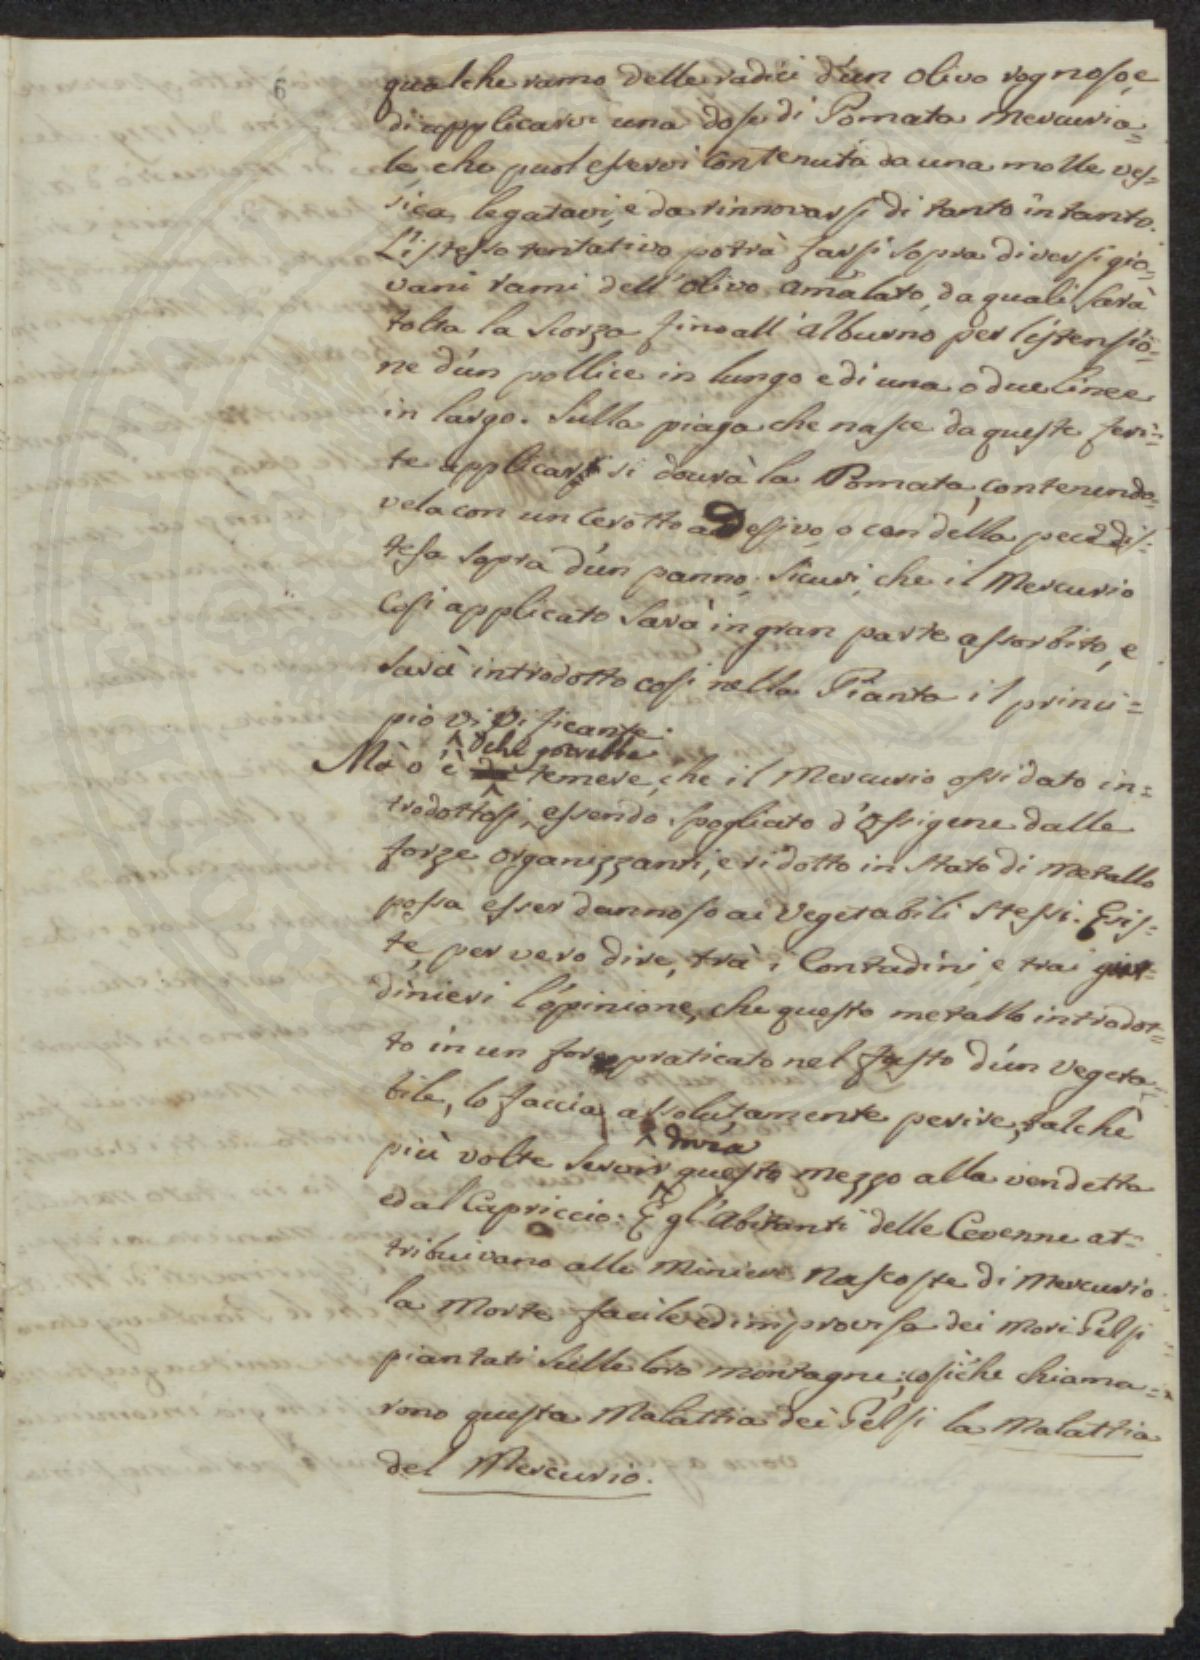 6
qualche ramo delle radici d'un olivo rognoso, e
di applicarvi una dose di Pomata Mercuria=
le, che puol esservi contenuta da una molle ves=
sica legatavi, e da rinnovarsi di tanto in tanto.
L'istesso tentativo potrà farsi sopra diversi gio=
vani rami dell'olivo amalato, da quali sarà
tolta la scorza fino all'alburno per l'istensio=
ne d'un pollice in lungo e di una o due linee
in largo. Sulla piaga che nasce da queste feri=
te applicar si dovrà la Pomata, contenendo=
vela con un cerotto adesivo, o con della pece dis=
tesa sopra d'un panno. Sicuri, che il Mercurio
così applicato sarà in gran parte assorbito, e
sarà introdotto così nella Pianta il princi=
pio vivificante.
che potrebbe
Mà o è temere, che il Mercurio ossidato in=
trodottosi, essendo spogliato d'Ossigene dalle
forze organizzanti, e ridotto in stato di metallo
possa esser dannoso ai vegetabili stessi. Esis=
te, per vero dire, trà i Contadini, e trai giar=
dinieri l'opinione, che questo metallo introdot=
to in un foro praticato nel fusto d'un vegeta=
bile, lo faccia assolutamente perire, talchè
più volte servir questo mezzo alla vendetta
ed al Capriccio. E gl'Abitanti delle Cevenne at=
tribuivano alle Miniere nascoste di Mercurio
la Morte facile ed improvisa dei Mori Gelsi
piantati sulle loro montagne; cosìche chiama=
rono questa Malattia dei Gelsi la Malattia
del Mercurio.